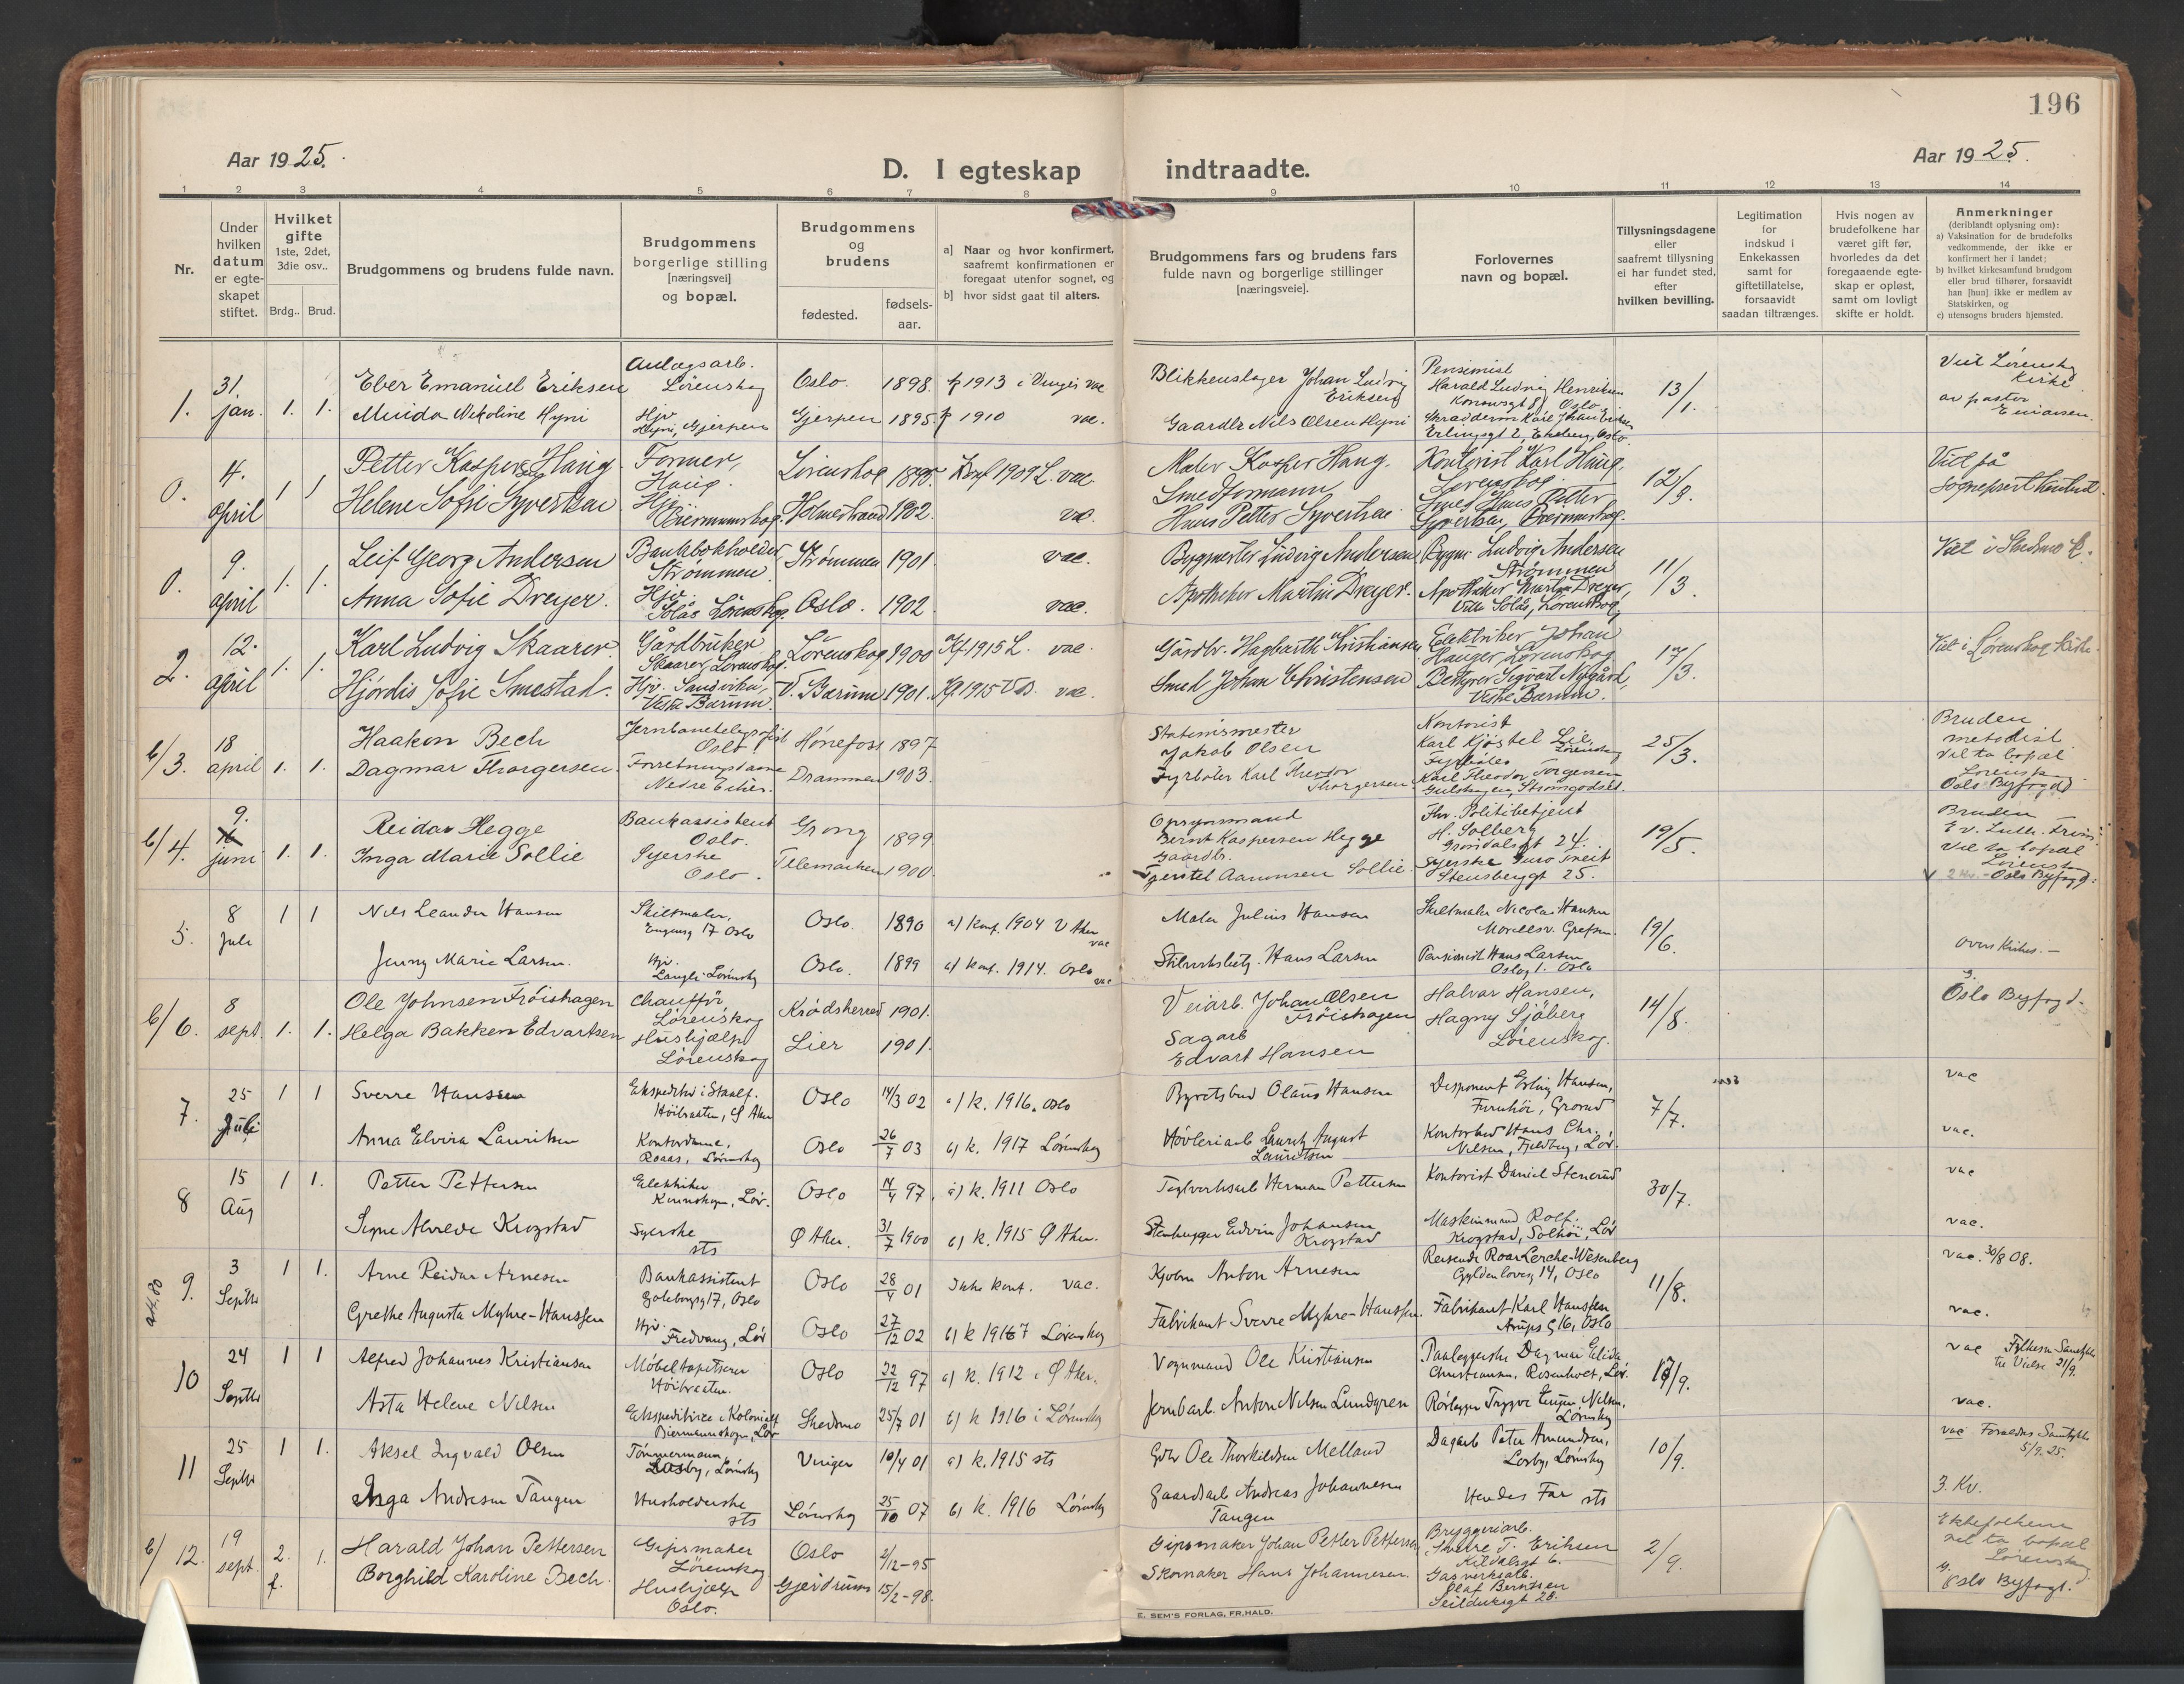 196
Aar 1925.
D. I egteskap indtraadte.
Aar 1925.
1 2 3 4 5 6 7 8 9 10 11 12 13 14
Nr.
Under hvilken datum er egteskapet stiftet.
Hvilket gifte 1ste, 2det, 3die osv..
Brdg.. Brud.
Brudgommens og brudens fulde navn.
Brudgommens borgerlige stilling [næringsvei] og bopæl.
Brudgommens og brudens
fødested.
fødsels-aar.
a] Naar og hvor konfirmert, saafremt konfirmationen er foregaat utenfor sognet, og
b] hvor sidst gaat til alters.
Brudgommens fars og brudens fars fulde navn og borgerlige stillinger [næringsveie].
Forlovernes navn og bopæl.
Tillysningsdagene eller saafremt tillysning ei har fundet sted, efter hvilken bevilling.
Legitimation for indskud i Enkekassen samt for giftetillatelse, forsaavidt saadan tiltrænges.
Hvis nogen av brudefolkene har været gift før, hvorledes da det foregaaende egteskap er opløst, samt om lovligt skifte er holdt.
Anmerkninger (deriblandt oplysning om):
a) Vaksination for de brudefolks vedkommende, der ikke er konfirmert her i landet;
b) hvilket kirkesamfund brudgom eller brud tilhører, forsaavidt han [hun] ikke er medlem av Statskirken, og
c) utensogns bruders hjemsted.
1. 31. jan. 1. 1.
Eber Emanuel Eriksen Anlægsarb. Lørenskog Oslo. 1898. 1913 vac Blikkenslager Johan Ludvig Eriksen
Harald Ludvig Henriksen Oslo 13/1.
Nikoline Hyni Hjv Hyni, Gjerpen Gjerpen 1895 1910 vac. Gaardbr Nils Olsen Hyni
Viet Lørenskog Kirke av pastor
0. 4. april 1 1
Petter Kasper Haug Former, Haug. Lørenskog Konf 1909 L. vac. Maler Kasper Haug. Kontorist Karl Haug. Lørenskog 12/3.
Helene Sofie Syvertsen Hjv. Biermannskog. Holmestrand 1902. vac. Smedformann Hans Petter Syvertsen Smed Hans Petter Syvertsen, Biermanskog.
Viet på
0. 9. april 1. 1.
Leif Georg Andersen Bankbokholder Strømmen Strømmen 1901. vac. Byggmester Ludvig Andersen Byggm. Ludvig Andersen Strømmen 11/3.
Anna Sofie Dreyer. Hjv. Solås Lørenskog. Oslo. 1902. vac. Apotheker Martin Dreyer. Apotheker Martin Dreyer, Villa Solås, Lørenskog
Viet i Skedsmo K.
2. 12. april 1. 1.
Karl Ludvig Skaarer Gårdbruker Skaarer Lørenskog. Lørenskog 1900 Kf. 1915 L. vac. Gårdbr. Hagbarth Kristiansen Elektriker Johan Hauger, Lørenskog 17/3.
Hjørdis Sofie Smestad. Hjv. Sandvika, Vestre Bærum. V. Bærum 1901. Kf 1915 V.B. vac. Smed Johan Christensen Bestyrer Sigvart Nygård, Vestre Bærum.
Viet i Lørenskog Kirke.
b/3. 18 april 1. 1.
Haakon Bech Jernbanetelegrafist Oslo. Hønefoss 1897 Stationsmester Jakob Olsen Kontorist Karl Kjøstel Lie, Lørenskog 25/3.
Dagmar Thorgersen. Forretningsdame Nedre Eiker. Drammen 1903. Fyrbøter Karl Theodor Thorgersen Fyrbøter Karl Theodor Torgersen Gulskogen, Strømgodset.
Bruden metodist. Vil ta bopæl Lørenskog. Oslo Byfogd
b/4. 9. juni 1. 1.
Reidar Hegge Bankassistent Oslo. Grong 1899. Opsynsmand Bernt Kaspersen Hegge Fhv. Politibetjent H. Solberg Grøndalsgt 24. 19/5.
Inga Marie Sollie Syerske Oslo. Telemarken 1900. Gaardbr. Aanonsen Sollie. Syerske Stensberggt 25.
Bruden Ev. Luth. Frim. Vil ta bopæl Lørenskog Oslo Byfogd.
5. 8 Juli 1 1
Nils Leander Hansen Skiltmaler, 17 Oslo Oslo. 1890 a) Konf. 1904 V Aker vac Maler Julius Hansen Skiltmaler Nicolai Hansen Grefsen. 19/6.
Jenny Marie Larsen. Hjv. Lørenskog Oslo. 1899 b) Konf. 1914. Oslo vac Hans Larsen Pensionist Hans Larsen Oslog 1. Oslo
b/6. 8 sept. 1. 1.
Ole Johnsen Frøishagen Chauffør, Lørenskog Krødsherred 1901. Veiarb. Johan Olsen Frøishagen Halvar Hansen, 14/8.
Helga Bakken Edvartsen Hushjælp Lørenskog Lier 1901. Sagarb Edvart Hansen Hagny Sjøberg Lørenskog.
Oslo Byfogd.
7. 25 Juli 1 1
Sverre Hansen Oslo 14/3 02 a) k. 1916. Oslo Olaus Hansen Disponent Erling Hansen, Furuhøi, Grorud 7/7. vac
Anna Elvira Lauritsen Kontordame, Roaas, Lørenskog Oslo 26/7 03 b) k. 1917 Lørenskog Høvleriarb Lauritz August Lauritsen Kontorbud Hans Chr. Nilsen, Fjeldberg, Lør. vac.
8 15 Aug 1 1.
Petter Pettersen Elektriker Lør. Oslo 14/4 97. a) k. 1911 Oslo Teglverksarb Herman Pettersen Kontorist Daniel Stenerud 30/7. vac
Signe Alvilde Krogstad Syerske sts Ø Aker. 31/7 1900 b) k. 1915 Ø Aker. Stenhugger Edvin Johansen Krogstad Maskinmand Rolf Krogstad, Solhøi, Lør vac.
9. 3 Septbr 1 1.
Arne Reidar Arnesen Bankassistent Gøteborgsg 17, Oslo Oslo 28/4 01 Ikke konf. vac. Anton Arnesen Reisende Roar Lerche-Wesenberg Gyldenløvesg 14, Oslo 11/8. vac. 30/8 08.
Grethe Augusta Myhre-Hanssen Hjv. Fredvang, Lør Oslo 27/12 02 b) k 1917 Lørenskog Fabrikant Sverre Myhre-Hanssen. Fabrikant Karl Hanssen Arups g 16, Oslo vac.
10 24 Septbr 1 1
Alfred Johannes Kristiansen Møbeltapetserer Høibraaten. Oslo 22/12 97 a) k. 1912 i Ø Aker. Vognmand Ole Kristiansen Paaleggerske Dagmar Elida Christiansen, Rosenholt, Lør. 17/9. vac Fylkesm Samtykke til Vielse 21/9.
Asta Helene Nilsen Ekspeditrice i Kolonialf. Biermannskogen, Lør Skedsmo 25/7 01 b) k 1916 i Lørenskog Jernbarb. Anton Nilsen Lundgren Rørlegger Trygve Eugen Nilsen, Lørenskog vac.
11 25 Septbr 1 1.
Aksel Ingvald Olsen Tømmermann, Losby, Lørenskog Vinger 10/4 01 a) k. 1915 sts Gdbr Ole Thorkildsen Melland Dagarb Peter Amundsen, Losby, Lørenskog 10/9. vac Foreldres Samtykke 5/9.25.
Inga Andresen Tangen Husholderske sts Lørenskog 25/10 07 b) k. 1916 Lørenskog Gaardsarb Andreas Johannesen Tangen Hendes Far sts 3. Kv.
b/12. 19 sept. 2. f. 1.
Harald Johan Pettersen Gipsmaker Lørenskog Oslo 2/12-95 Gipsmaker Johan Petter Pettersen Bryggeriarb. Sverre T. Eriksen Kildalsgt 6. 2/9.
Borghild Karoline Bech. Hushjælp Oslo. Gjerdrum 15/2-98. Skomaker Hans Johannesen. Gasverksarb. Olaf Berntsen Seilduksgt 28.
Ektefolkene vil ta bopæl Lørenskog. Oslo Byfogd.
E. SEM'S FORLAG, FR.HALD.